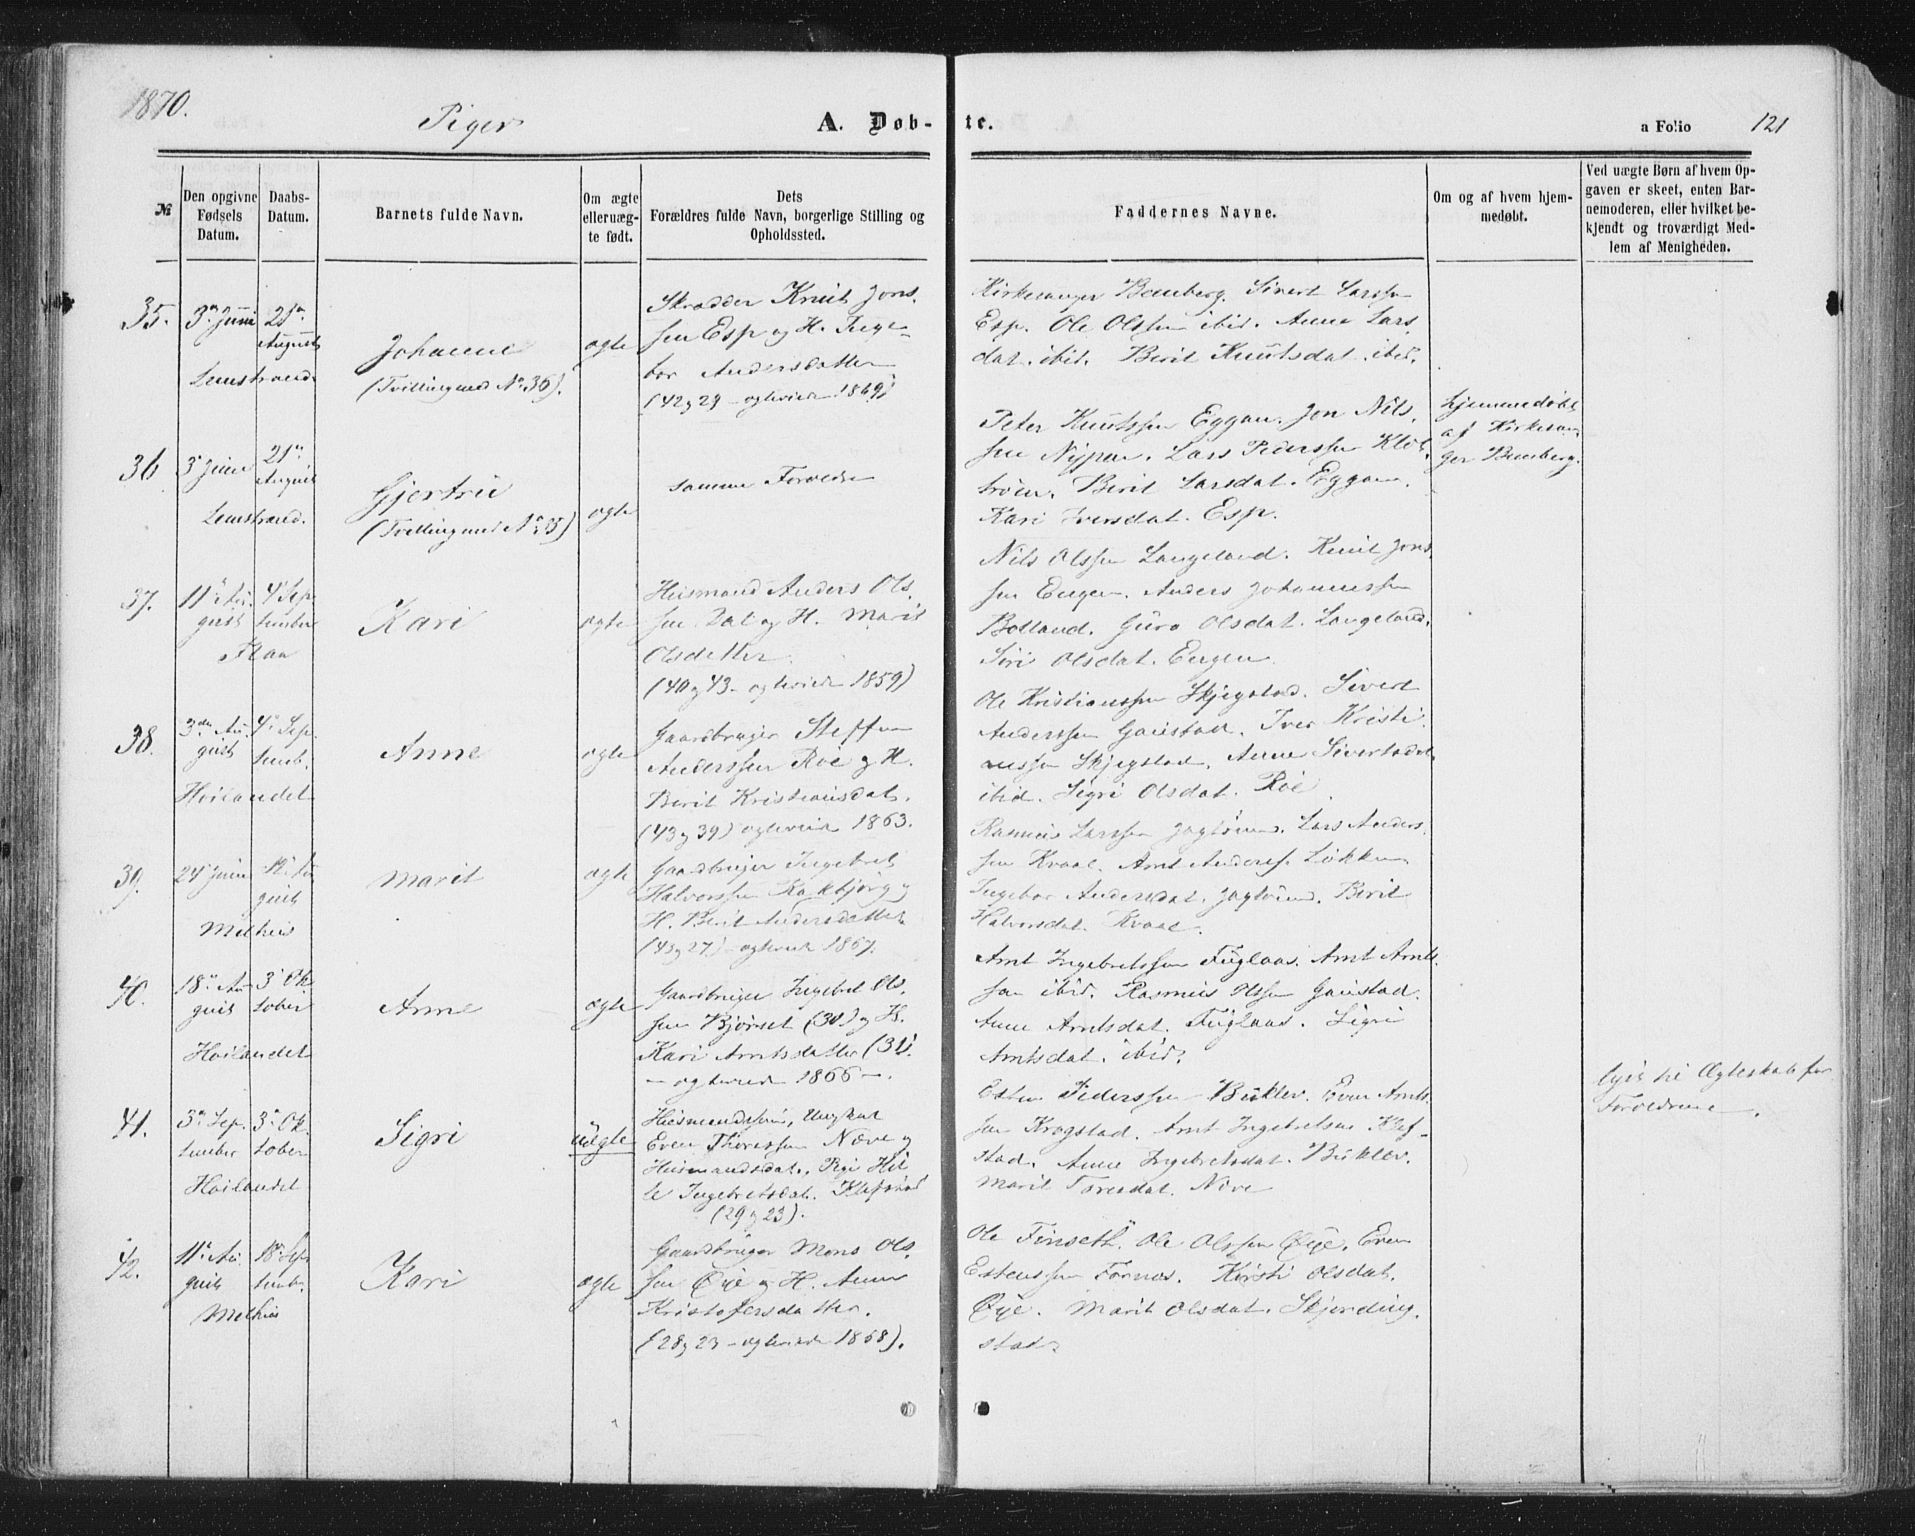 1870.
Piger
A. Døb-
te.
a Folio 121
№
Den opgivne Fødsels Datum.
Daabs-Datum.
Barnets fulde Navn.
Om ægte eller uæg-te født.
Dets Forældres fulde Navn, borgerlige Stilling og Opholdssted.
Faddernes Navne.
Om og af hvem hjem-medøbt.
Ved uægte Børn af hvem Op-gaven er skeet, enten Bar-nemoderen, eller hvilket be-kjendt og troværdigt Med-lem af Menigheden.
35.
3' Juni
21'
August
Lenstrand.
Johanne
(Tvilling med No 36).
ægte
Skrædder Knut Jons.
sen Esp og H. Inge-
bor Andersdatter
(42 og 29 - egteviede 1869)
Kirkesanger Bemberg. Sivert Larssen
Esp. Ole Olssen ibid. Anne Lars
dat. ibid. Berit Knutsdat. ibid.
36
3' Juni
21'
August
Lenstrand.
Gjertru
(Tvilling med No 35)
ægte
samme Forældre
Peter Knutssen Eggan. Jon Nils.
sen Nypan. Lars Pederssen Klæt.
trøen. Berit Larsdat. Eggan.
Kari Iversdat. Esp.
hjemmedøbt
af Kirkesan-
ger Bemberg.
37.
11' Au.
gust
4' Sep.
tember
Flaa
Kari
ægte
Husmand Anders Ols.
sen Dal og H. Marit
Olsdatter
(40 og 43 - egteviede 1859)
Nils Olssen Langeland. Knut Jons.
sen Engen. Anders Johannessen
Bolland. Guro Olsdat. Langeland.
Siri Olsdat. Engen
38.
3die Au.
gust
4' Sep.
temb.
Høilandet
Anne
ægte
Gaardbruger Steffen
Anderssen Røe og H.
Berit Kristiansdat.
(43 og 39) egteviede 1863.
Ole Kristianssen Skjegstad. Sivert
Anderssen Gaustad. Iver Kristi
anssen Skjegstad. Anne Sivertsdat.
ibid. Sigri Olsdat. Røe
39.
24' Juni
gust
Melhus
Marit
ægte
Gaardbruger Ingebret
Halvorssen Rakbjørg og
H. Berit Andersdatter
(43 og 27) - egteviede 1867.
Rasmus Larssen Jagtøien. Lars Anders.
sen Kvaal. Arnt Anders. Løkken
Ingebor Andersdat. Jagtøien. Berit
Halvorsdat. Kvaal.
40.
18' Au
gust
3' Ok.
tober
Høilandet
Anne
ægte
Gaardbruger Ingebret Ols.
sen Bjørset (30) og H.
Kari Arntsdatter (31)
- egteviede 1866 -.
Arnt Ingebretssen Fuglaas. Arnt Arnts.
sen ibid. Rasmus Olssen Gaustad.
Anne Arntsdat. Fuglaas. Sigri
Arntsdat. ibid.
41.
3' Sep.
tember
3' Ok.
tober
Høilandet
Sigri
uægte
Husmandssøn, Ungkar
Even Thoressen Næve og
Husmandsdat., Pige Hil
le Ingebretsdat. Klefstad
(29 og 23).
Esten Pederssen Buklev. Even Arnts.
sen Krogstad. Arnt Ingebretsen Klef-
stad. Anne Ingebretsdat. Buklev.
Marit Toresdat. Næve
lyst til Ægteskab for
Forældrene.
42.
11' Au
gust
18' Sep
temb.
Melhus
Kari
ægte
Gaardbruger Mons Ols.
sen Øye og H. Anne
Kristofersdatter.
(28 og 23 - egteviede 1868).
Ole Finseth. Ole Olssen Øye. Even
Estenssen Fornes. Kirsti Olsdat.
Øye. Marit Olsdat. Skjerding.
stad.